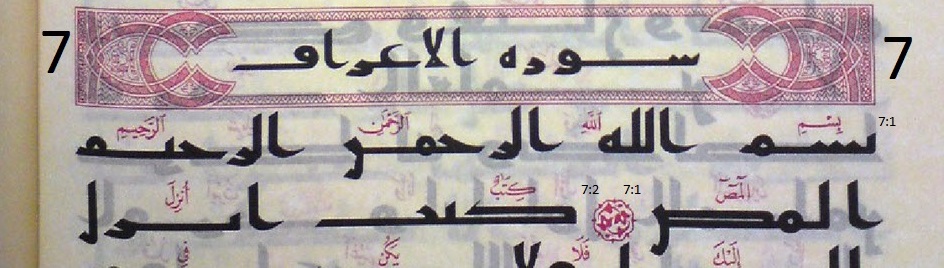 7 سوره الاعراف 7
بِسْمِ اللَّهِ الرَّحْمَٰنِ الرَّحِيمِ
بسم الله الرحمن الرحيم 7:1
الٓمٓصٓ 7:1 7:2 كِتَٰبٌ أُنزِلَ
المص كتب انزل
إِلَيْكَ فَلَا يَكُن فِي